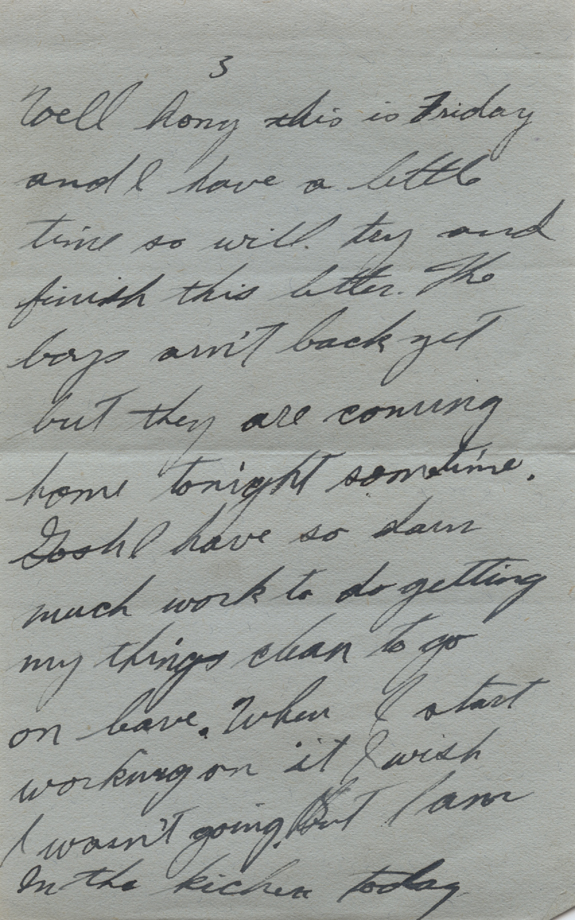 3
Well hony this is Friday
and I have a little
time so will. try and
finish this letter. The
boys arn't back yet
but they are coming
home tonight sometime.
Gosh I have so darn
much work to do getting
my things clean to go
on leave. When I start
working on it I wish
I wasn't going. But I am
In the kichen today